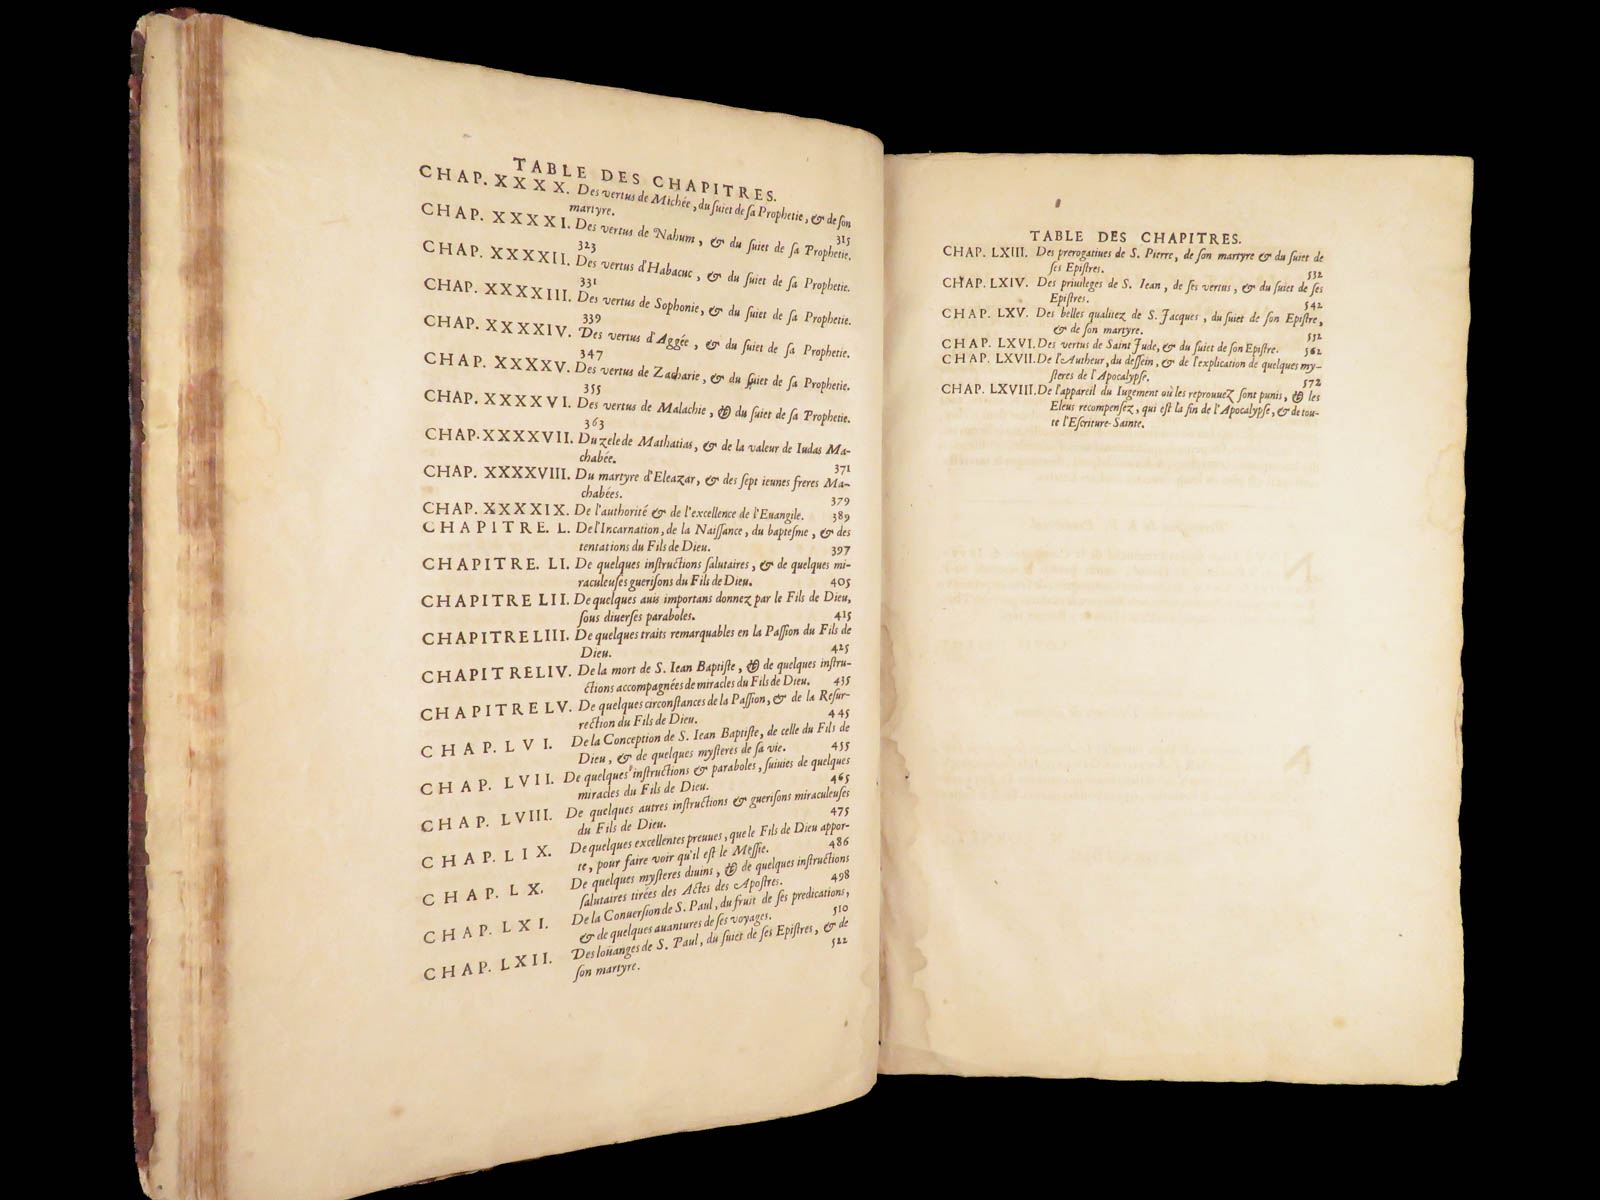 TABLE DES CHAPITRES.
CHAP. XXXX. Des vertus de Michée, du ſuiet de ſa Prophetie, & de ſon
martyre. 315
CHAP. XXXXI. Des vertus de Nahum, & du ſuiet de ſa Prophetie.
323
CHAP. XXXXII. Des vertus d'Habacuc, & du ſuiet de ſa Prophetie.
331
CHAP. XXXXIII. Des vertus de Sophonie, & du ſuiet de ſa Prophetie.
339
CHAP. XXXXIV. Des vertus d'Aggée, & du ſuiet de ſa Prophetie.
347
CHAP. XXXXV. Des vertus de Zacharie, & du ſuiet de ſa Prophetie.
355
CHAP. XXXXVI. Des vertus de Malachie, & du ſuiet de ſa Prophetie.
363
CHAP. XXXXVII. Du zele de Mathatias, & de la valeur de Iudas Ma-
chabée. 371
CHAP. XXXXVIII. Du martyre d'Eleazar, & des ſept ieunes freres Ma-
chabées. 379
CHAP. XXXXIX. De l'authorité & de l'excellence de l'Euangile. 389
CHAPITRE. L. De l'Incarnation, de la Naiſſance, du bapteſme, & des
tentations du Fils de Dieu. 397
CHAPITRE. LI. De quelques inſtructions ſalutaires, & de quelques mi-
raculeuſes gueriſons du Fils de Dieu. 405
CHAPITRE LII. De quelques auis importans donnez par le Fils de Dieu,
ſous diuerſes paraboles. 415
CHAPITRE LIII. De quelques traits remarquables en la Paſſion du Fils de
Dieu. 425
CHAPITRE LIV. De la mort de S. Iean Baptiſte, & de quelques inſtru-
ctions accompagnées de miracles du Fils de Dieu. 435
CHAPITRE LV. De quelques circonſtances de la Paſſion, & de la Reſur-
rection du Fils de Dieu. 445
CHAP. LVI. De la Conception de S. Iean Baptiſte, de celle du Fils de
Dieu, & de quelques myſteres de ſa vie. 455
CHAP. LVII. De quelques inſtructions & paraboles, ſuiuies de quelques
miracles du Fils de Dieu. 465
CHAP. LVIII. De quelques autres inſtructions & gueriſons miraculeuſes
du Fils de Dieu. 475
CHAP. LIX. De quelques excellentes preuues, que le Fils de Dieu appor-
te, pour faire voir qu'il eſt le Meſſie. 486
CHAP. LX. De quelques myſteres diuins, & de quelques inſtructions
ſalutaires tirées des Actes des Apoſtres. 498
CHAP. LXI. De la Conuerſion de S. Paul, du fruit de ſes predications,
& de quelques auantures de ſes voyages. 510
CHAP. LXII. Des loüanges de S. Paul, du ſuiet de ſes Epiſtres, & de
ſon martyre. 522
TABLE DES CHAPITRES.
CHAP. LXIII. Des prerogatiues de S. Pierre, de ſon martyre & du ſuiet de
ſes Epiſtres. 532
CHAP. LXIV. Des priuileges de S. Iean, de ſes vertus, & du ſuiet de ſes
Epiſtres. 542
CHAP. LXV. Des belles qualitez de S. Jacques, du ſuiet de ſon Epiſtre,
& de ſon martyre. 552
CHAP. LXVI. Des vertus de Saint Jude, & du ſuiet de ſon Epiſtre. 562
CHAP. LXVII. De l'Autheur, du deſſein, & de l'explication de quelques my-
ſteres de l'Apocalypſe. 572
CHAP. LXVIII. De l'appareil du Iugement où les reprouuez ſont punis, & les
Eleus recompenſez, qui eſt la fin de l'Apocalypſe, & de tou-
te l'Eſcriture-Sainte.